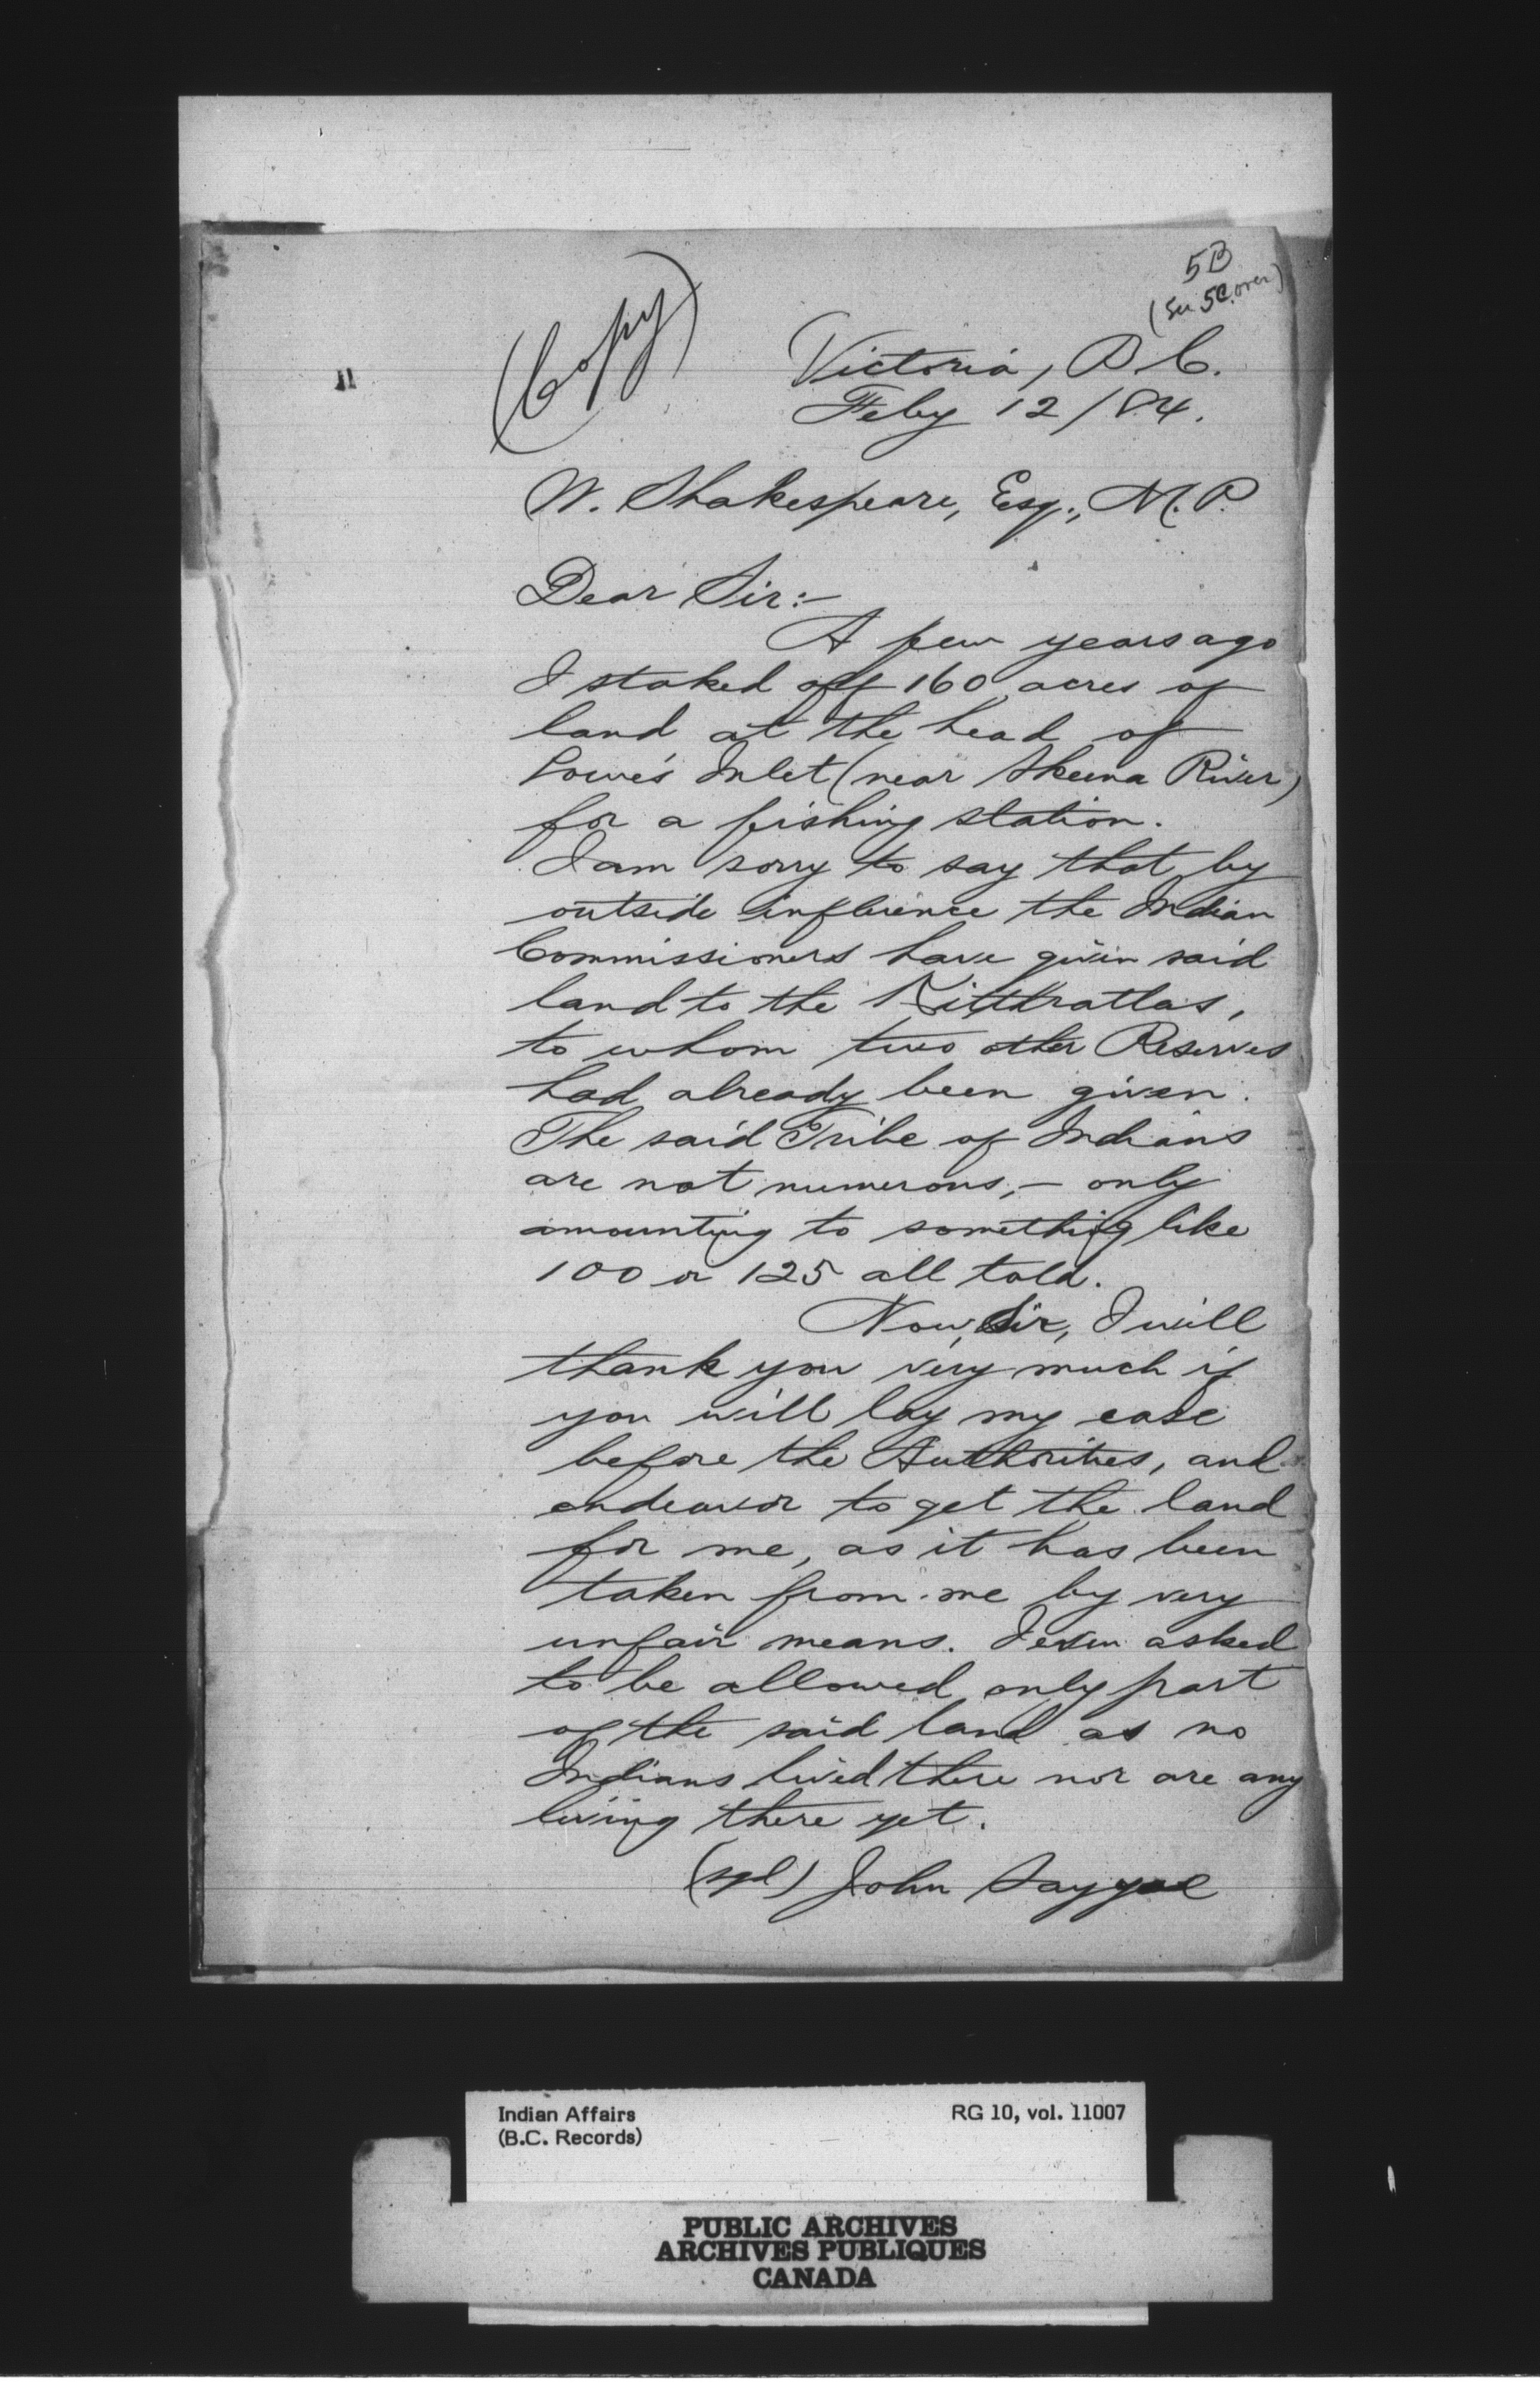 5B
(See 5C. over)
(Copy)
Victoria, B.C.
Feby 12/84.
W. Shakespeare, Esq., M.P.
Dear Sir:-
A few years ago
I staked off 160 acres of
land at the head of
Lowe's Inlet (near Skeena River)
for a fishing station.
I am sorry to say that by
outside influence the Indian
Commissioners have given said
land to the Kitthratlas,
to whom two other Reserves
had already been given.
The said Tribe of Indians
are not numerous,- only
amounting to something like
100 or 125 all told.
Now, Sir, I will
thank you very much if
you will lay my case
before the Authorities, and
endeavor to get the land
for me, as it has been
taken from me by very
unfair means. I even asked
to be allowed only part
of the said land as no
Indians lived there nor are any
living there yet.
(sgd) John
Indian Affairs
(B.C. Records)
RG 10, vol. 11007
PUBLIC ARCHIVES
ARCHIVES PUBLIQUES
CANADA